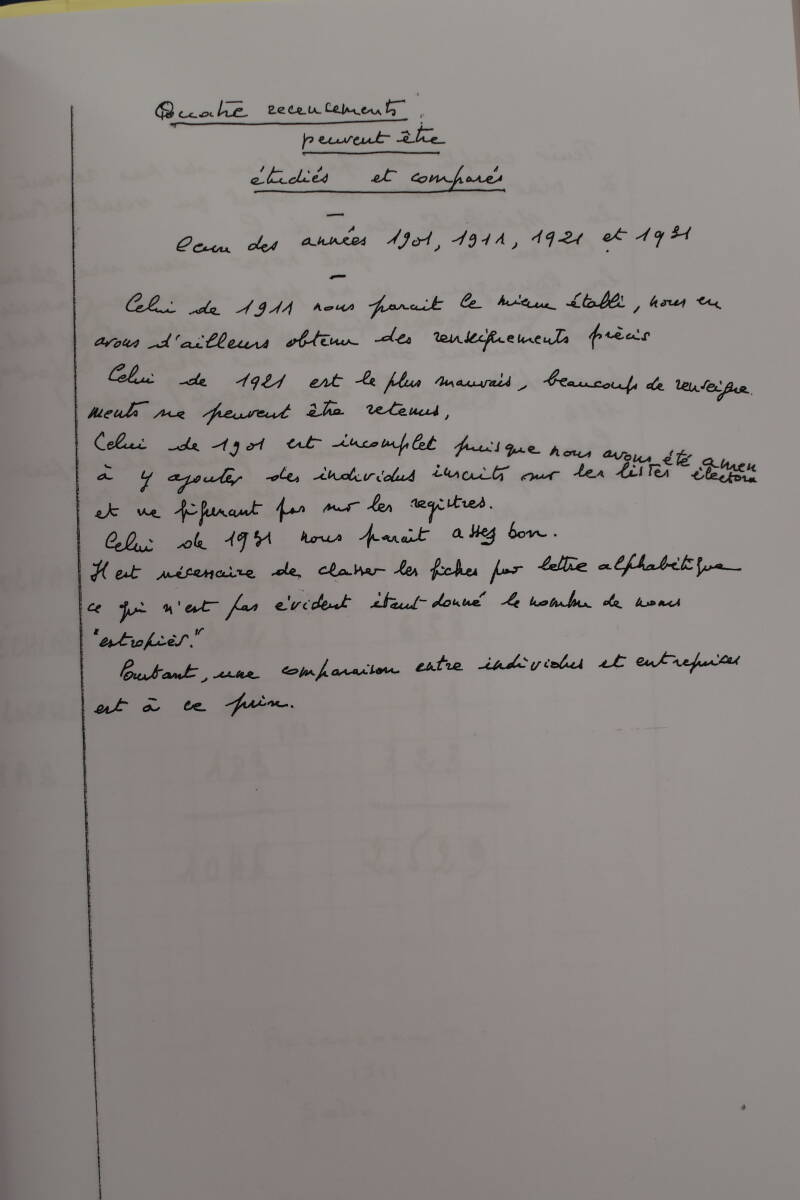 Quatre recencements
peuvent être
étudiés et comparés
—
Ceux des années 1901, 1911, 1921 et 1931
—
Celui de 1911 nous parait le mieux établi, nous en
avons d'ailleurs obtenu des renseignements précis
Celui de 1921 est le plus mauvais, beaucoup de renseigne
ments ne peuvent être retenus,
Celui de 1901 est incomplet puisque nous avons été amen
à y ajouter des individus inscrits sur les listes électora
et ne figurant pas sur les registres.
Celui de 1931 nous parait assez bon.
Il est nécessaire de classer les fiches par lettre alphabétique
ce qui n'est pas évident étant donné le nombre de noms
"estropiés."
Pourtant, une comparaison entre individus et entreprises
est à ce prix.